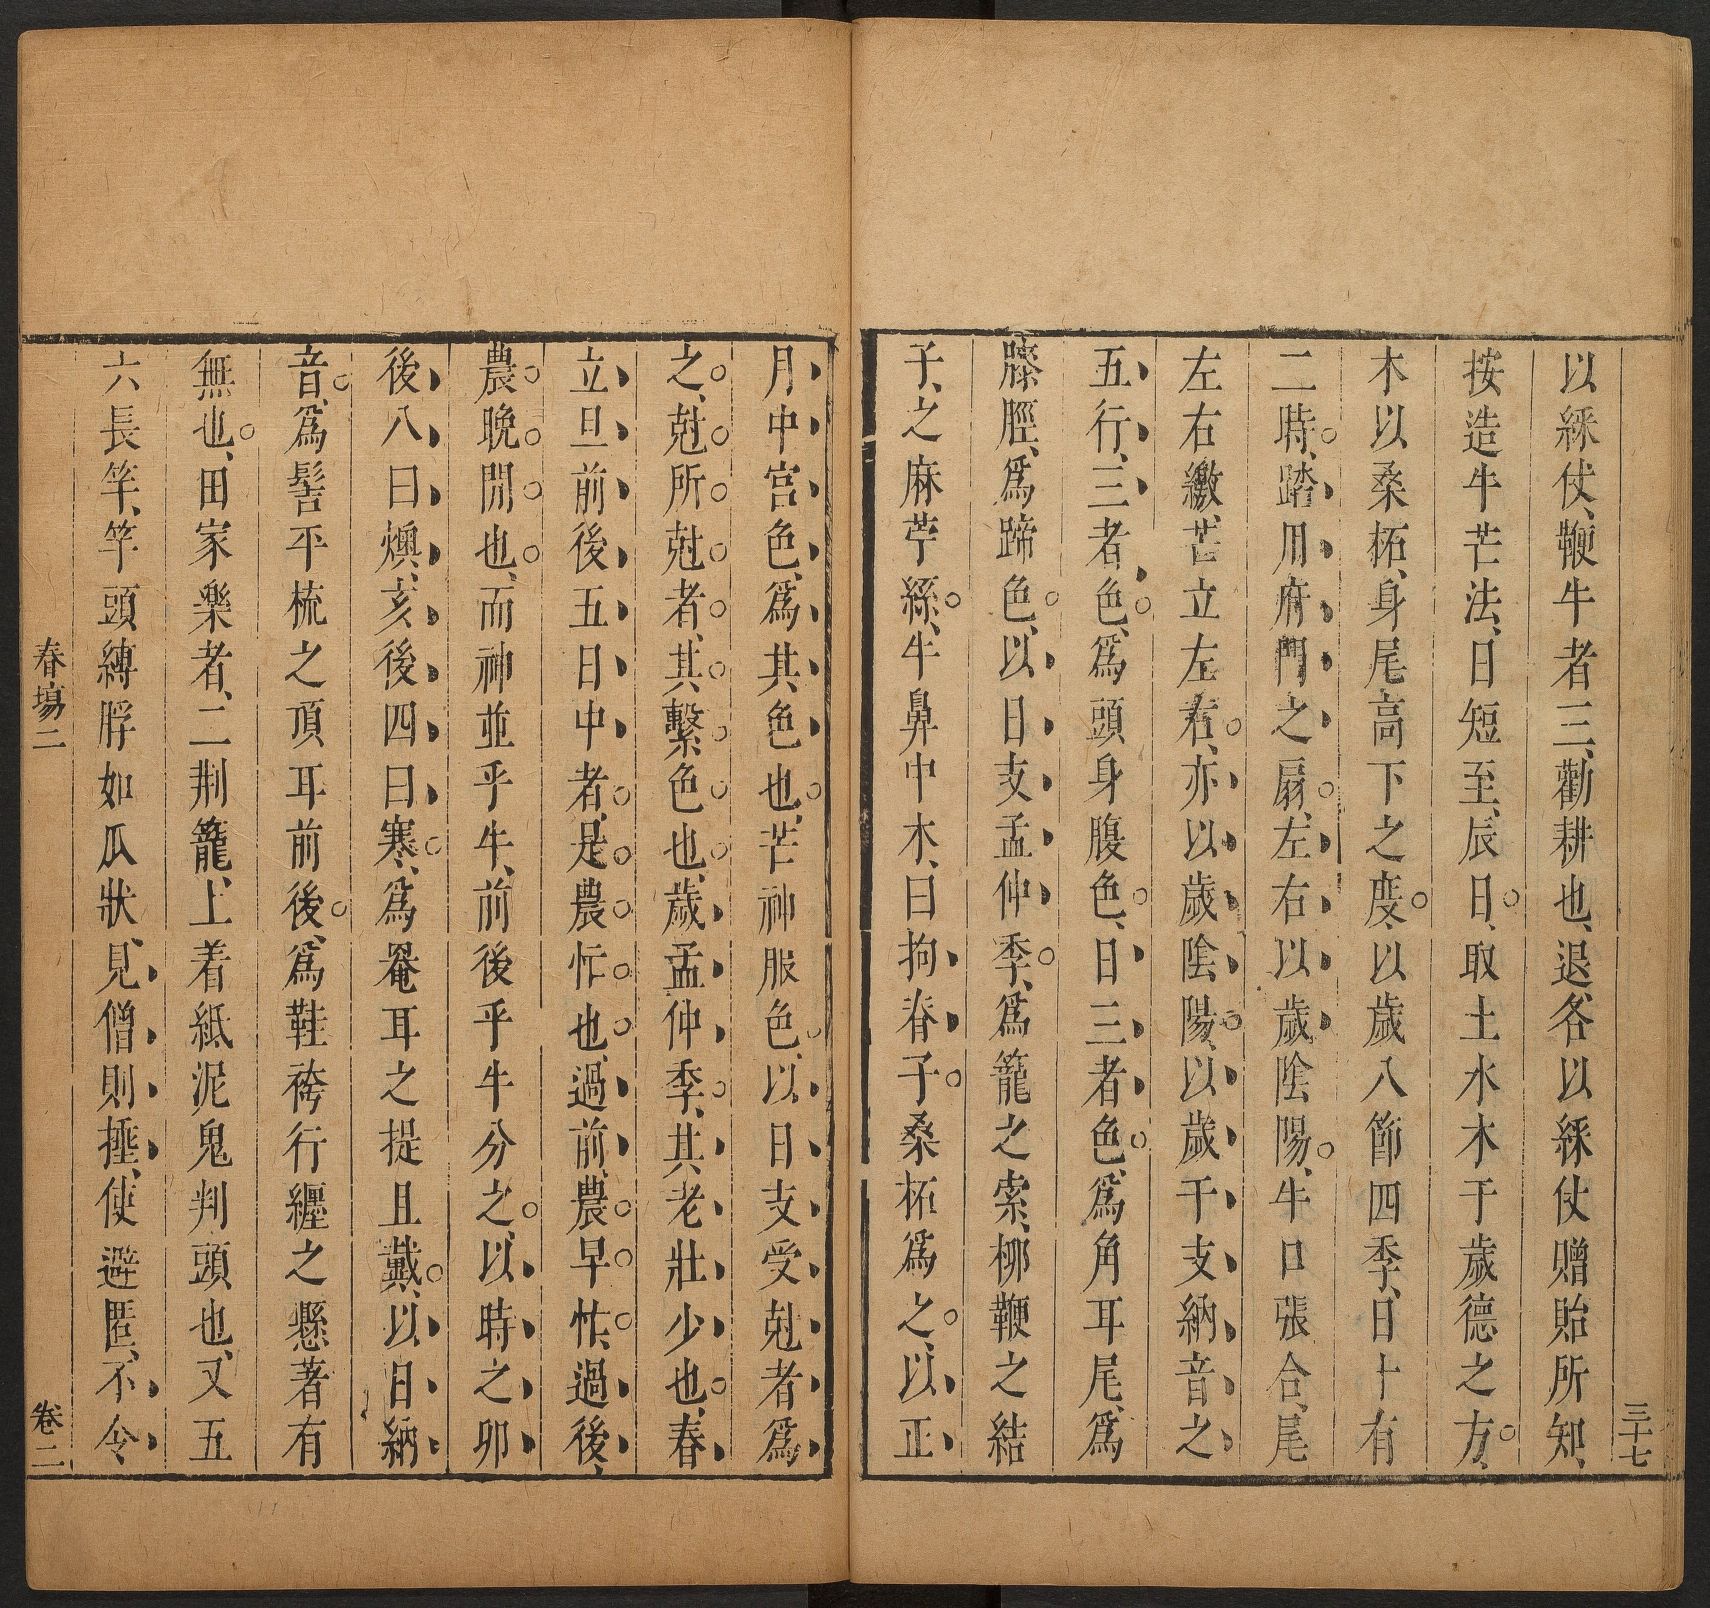 三十七
以綵仗、鞭牛者三、勸耕也、退、各以綵仗贈貽所知、
按造牛芒法、日短至、辰日、取土水木于歲德之方、
木以桑柘、身尾高下之度、以歲八節四季、日十有
二時、踏用府門之扇、左右以歲陰陽、牛口張合、尾
左右繳、芒立左右、亦以歲陰陽、以歲干支納音之
五行、三者色、爲頭身腹色、日三者色、爲角耳尾、爲
膝脛、爲蹄色、以日支孟仲季、爲籠之索、柳鞭之結
子、之麻苧絲、牛鼻中木、曰拘春子、桑柘爲之、以正
月中宮色、爲其色也、芒神服色、以日支受尅者爲
之、尅所尅者、其繫色也、歲孟仲季、其老壯少也、春
立旦前後五日中者、是農忙也、過前、農早忙、過後、
農晚閒也、而神並乎牛、前後乎牛分之、以時之卯
後八曰燠、亥後四曰寒、爲罨耳之提且戴、以日納
音、爲髻平梳之頂耳前後、爲鞋袴行纏之懸著有
無也、田家樂者、二荆籠、上着紙泥鬼判頭也、又五
六長竿、竿頭縛脬如瓜狀、見僧則捶、使避匿、不令
春場二
卷二